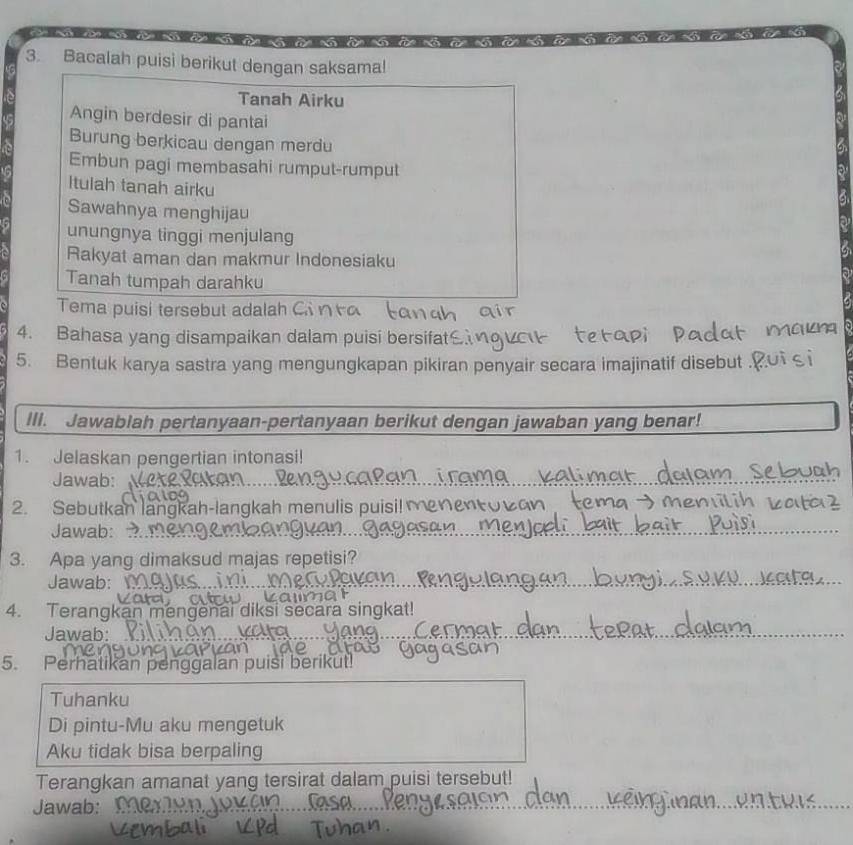 3. Bacalah puisi berikut dengan saksama!
Tanah Airku
Angin berdesir di pantai
Burung berkicau dengan merdu
Embun pagi membasahi rumput-rumput
Itulah tanah airku
Sawahnya menghijau
unungnya tinggi menjulang
Rakyat aman dan makmur Indonesiaku
Tanah tumpah darahku
Tema puisi tersebut adalah Cinta tanah air
4. Bahasa yang disampaikan dalam puisi bersifat Singkat tetapi Padat makna
5. Bentuk karya sastra yang mengungkapan pikiran penyair secara imajinatif disebut Puisi
III. Jawablah pertanyaan-pertanyaan berikut dengan jawaban yang benar!
1. Jelaskan pengertian intonasi!
Jawab: Ketepatan Pengucapan irama kalimat dalam Sebuah
dialog
2. Sebutkan langkah-langkah menulis puisi! menentukan tema → memilih kata2
Jawab: → mengembangkan gagasan menjadi bait bait Puisi
3. Apa yang dimaksud majas repetisi?
Jawab: majas ini merupakan Pengulangan bunyi, suku kata,
kata, atau kalimat
4. Terangkan mengenai diksi secara singkat!
Jawab: Pilihan kata yang Cermat dan tepat dalam
mengungkapkan ide atau gagasan
5. Perhatikan penggalan puisi berikut!
Tuhanku
Di pintu-Mu aku mengetuk
Aku tidak bisa berpaling
Terangkan amanat yang tersirat dalam puisi tersebut!
Jawab: menunjukan rasa Penyesalan dan keinginan untuk
kembali kpd Tuhan.